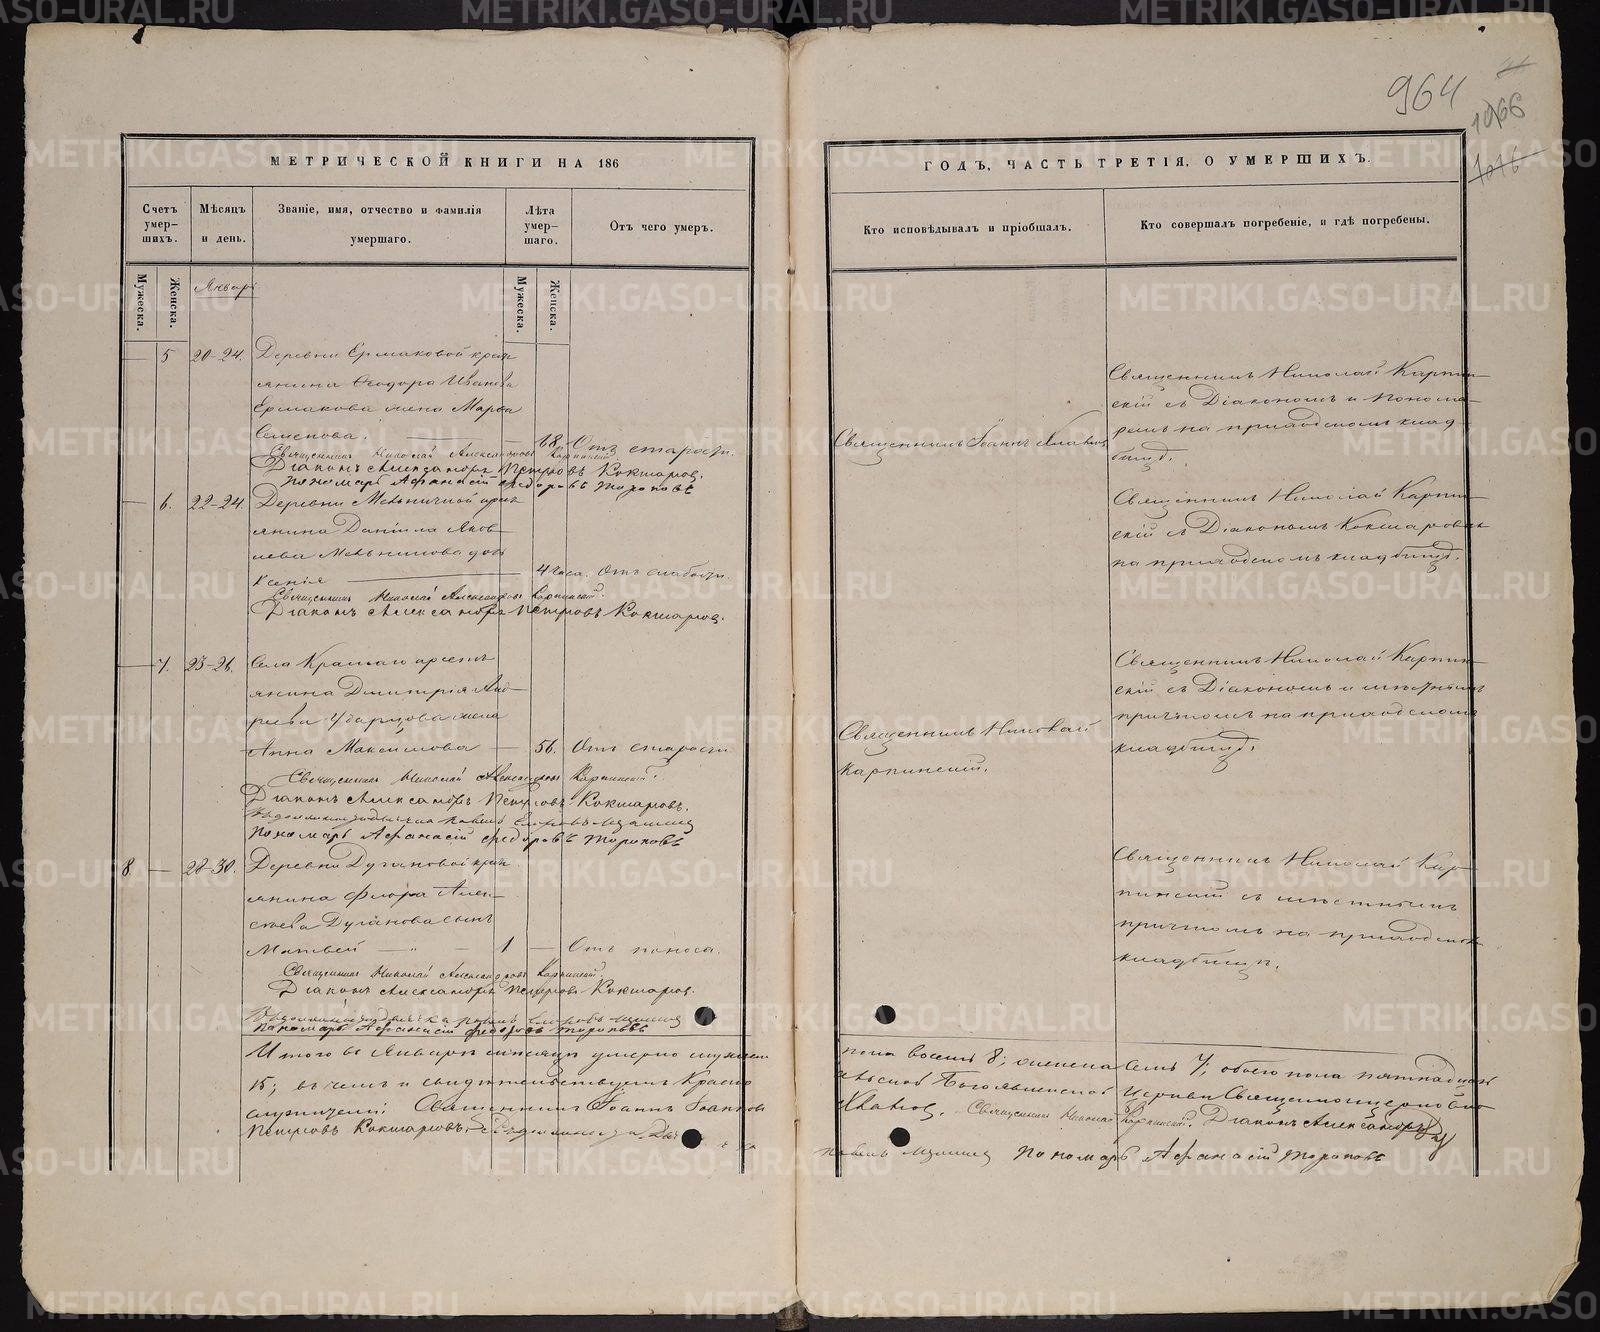 964
1066
1016
МЕТРИЧЕСКОЙ КНИГИ НА 186
Счетъ умер-шихъ.
Мѣсяцъ и день.
Званіе, имя, отчество и фамилія умершаго.
Лѣта умер-шаго.
Отъ чего умеръ.
Мужеска.
Женска.
Январь
Мужеска.
Женска.
5 20-24. Деревни Ермаковой крест
янина Ѳеодора Иванова
Ермакова жена Марѳа
Семенова. 68. Отъ старости.
Священникъ Николай Александровъ Карпинскій
Діаконъ Александръ Петровъ Кокшаровъ.
Пономарь Афанасій Федоровъ Тороповъ
6. 22-24. Деревни Мельничной крест
янина Даніила Яков
лева Мельникова дочь
Ксенія 4 часа. Отъ слабости.
Священникъ Николай Александровъ Карпинскій.
Діаконъ Александръ Петровъ Кокшаровъ.
7. 23-26. Села крест
янина Димитрія Анд
реева жена
Анна Максимова 56. Отъ старости
Священникъ Николай Александровъ Карпинскій.
Діаконъ Александръ Петровъ Кокшаровъ.
Пономарь Афанасій Федоровъ Тороповъ
8 28-30. Деревни Дугановой крест
янина Флора Алек
сѣева Дуганова сынъ
Матвей 1 Отъ поноса.
Священникъ Николай Александровъ Карпинскій.
Діаконъ Александръ Петровъ Кокшаровъ.
Пономарь Афанасій Федоровъ Тороповъ
Итого въ Январѣ мѣсяцѣ умерло мужеска
15; въ чемъ и свидѣтельствуемъ Красно
Священникъ Іоаннъ Іоанновъ
Петровъ Кокшаровъ.
ГОДЪ, ЧАСТЬ ТРЕТІЯ, О УМЕРШИХЪ.
Кто исповѣдывалъ и пріобщалъ.
Кто совершалъ погребеніе, и гдѣ погребены.
Священникъ Іоаннъ Хлыновъ
Священникъ Николай Карпин
скій съ Діакономъ и Понома
ремъ на приходскомъ клад
бищѣ.
Священникъ Николай Карпин
скій съ Діакономъ Кокшаровымъ
на приходскомъ кладбищѣ.
Священникъ Николай
Карпинскій.
Священникъ Николай Карпин
скій съ Діакономъ и мѣстнымъ
причтомъ на приходскомъ
кладбищѣ.
Священникъ Николай Кар
пинскій съ мѣстнымъ
причтомъ на приходскомъ
кладбищѣ.
пола восемь 8; женска семь 7; обоего пола пятнадцать
Богоявленской Церкви
Священникъ Николай Карпинскій. Діаконъ Александръ
Пономарь Афанасій Тороповъ
METRIKI.GASO-URAL.RU